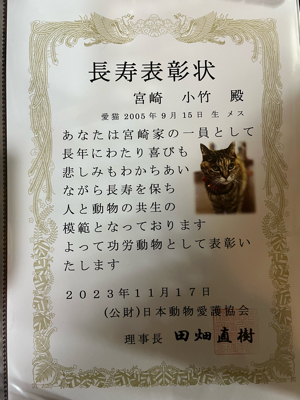 長寿表彰状
宮崎 小竹 殿
愛猫 2005年9月15日 生 メス
あなたは宮崎家の一員として
長年にわたり喜びも
悲しみもわかちあい
ながら長寿を保ち
人と動物の共生の
模範となっております
よって功労動物として表彰い
たします
2023年11月17日
(公財)日本動物愛護協会
理事長 田畑直樹